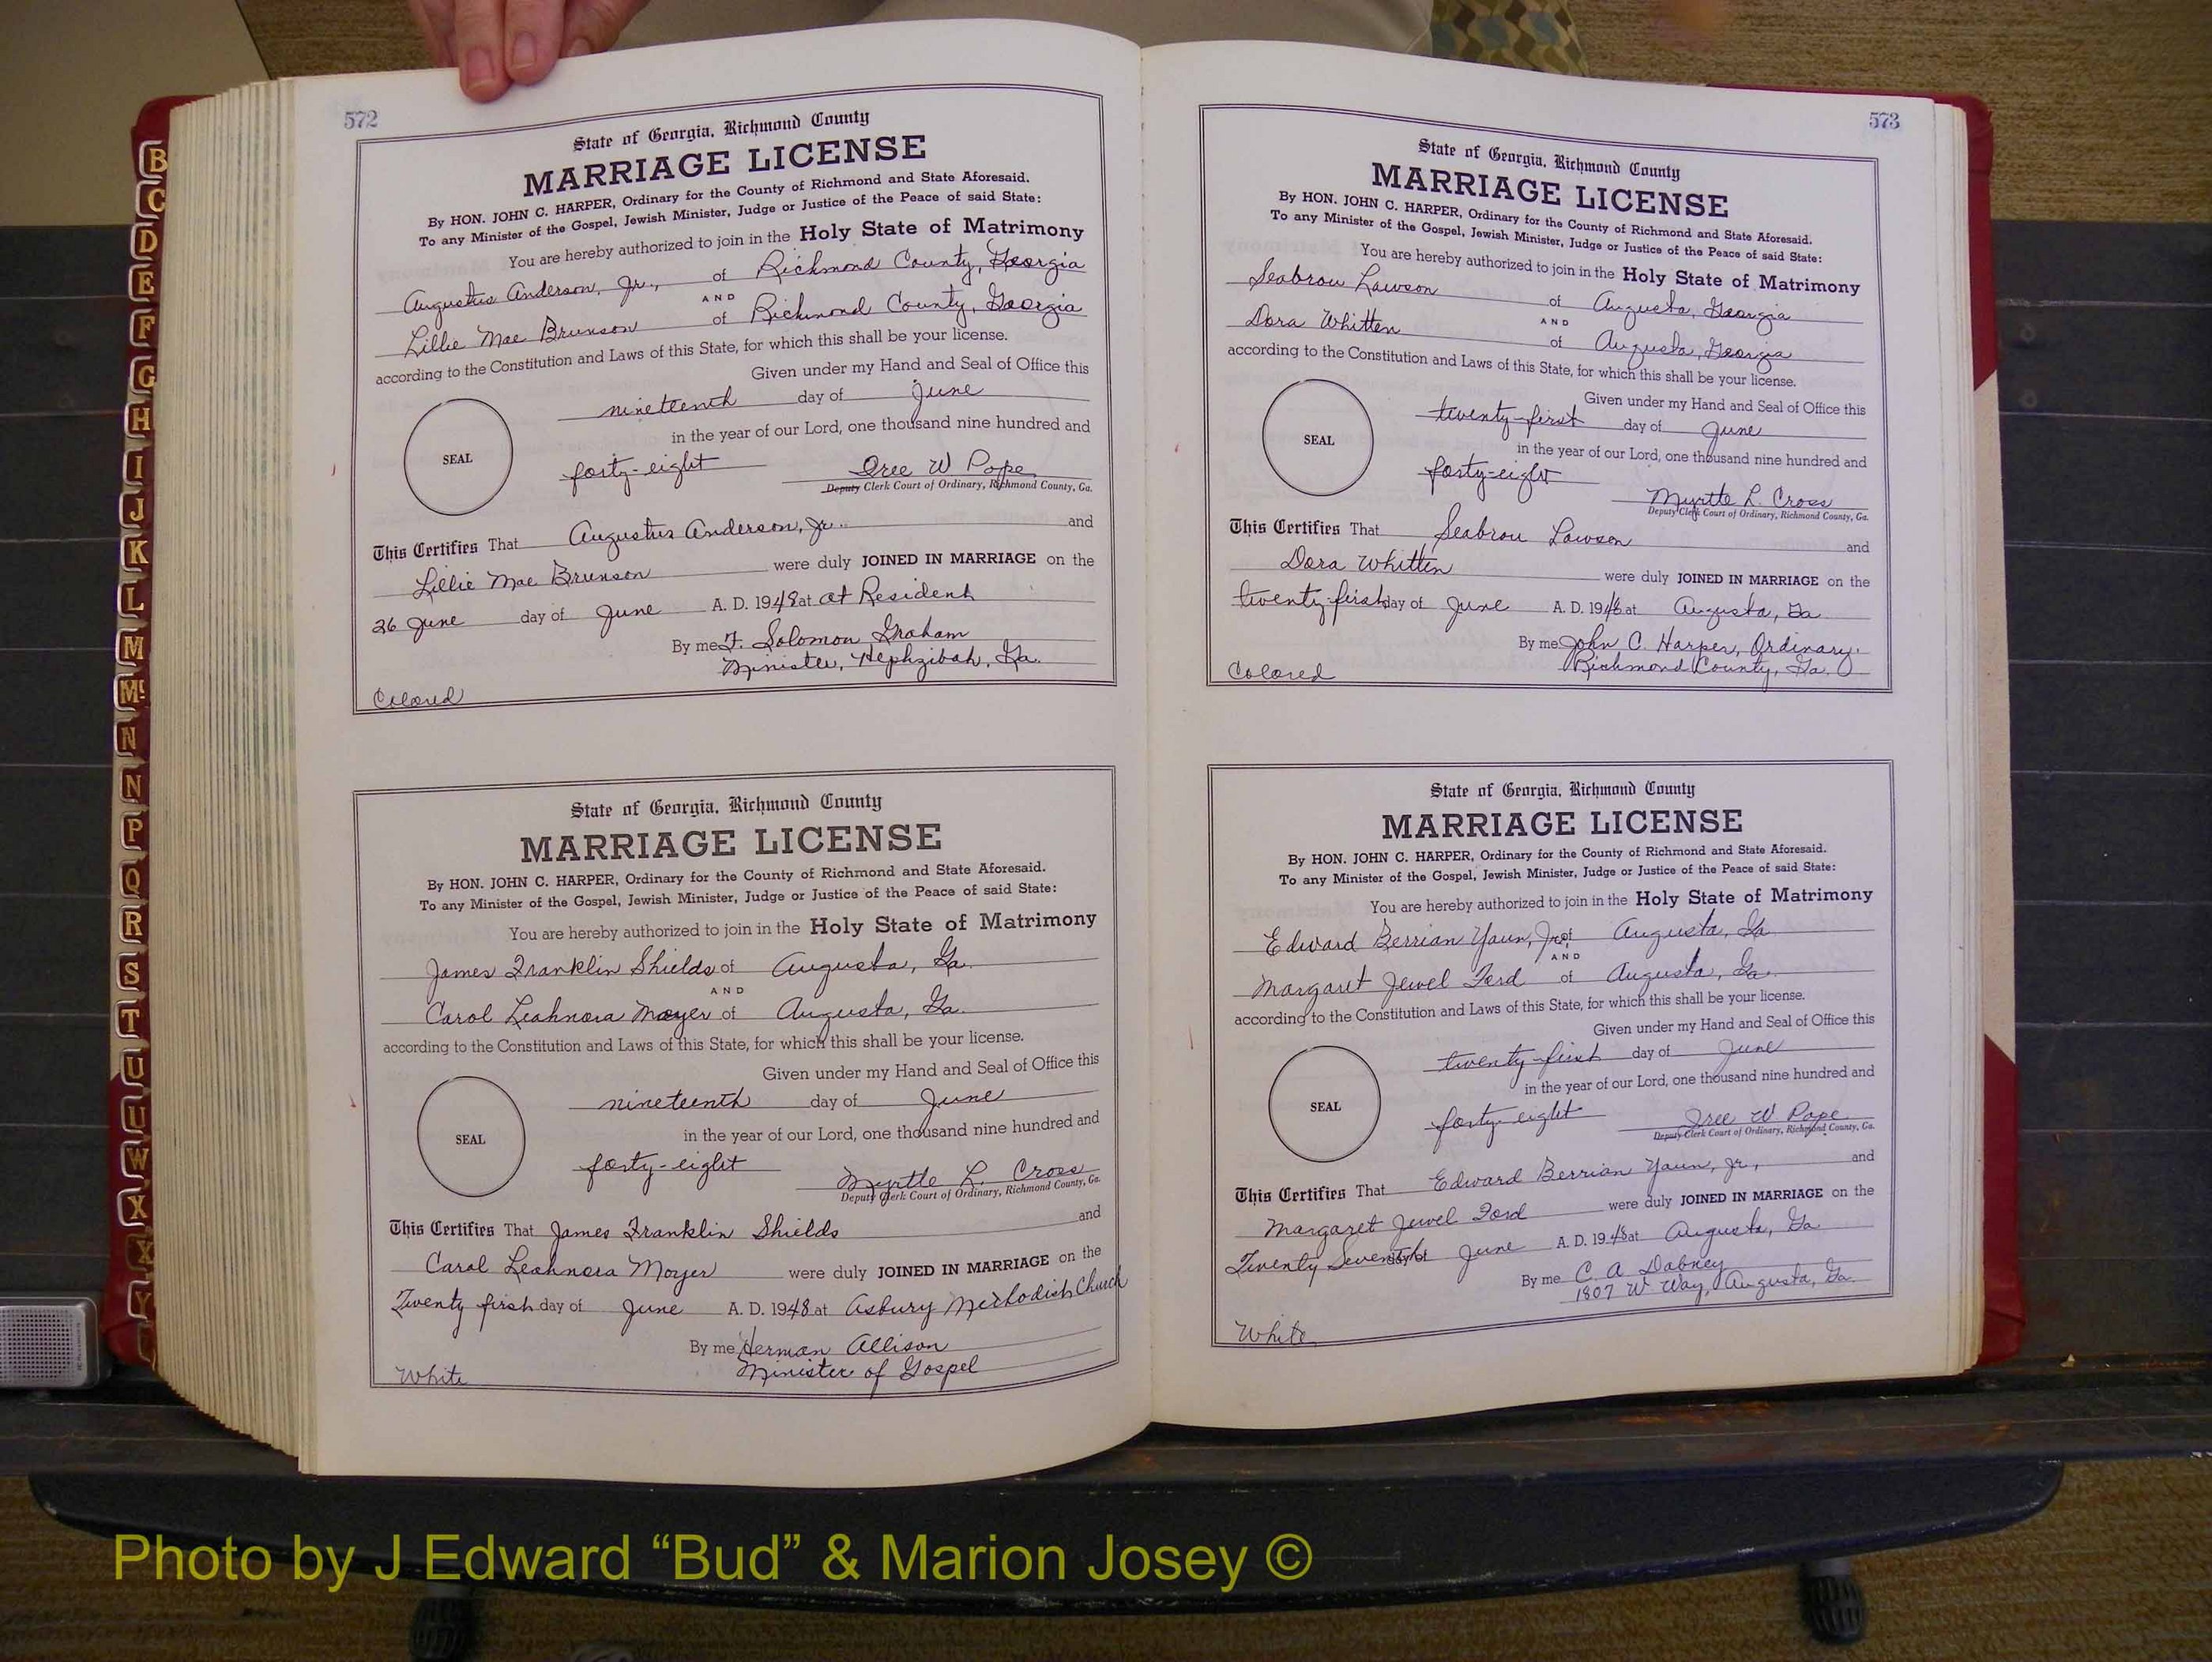 572
State of Georgia, Richmond County
MARRIAGE LICENSE
By HON. JOHN C. HARPER, Ordinary for the County of Richmond and State Aforesaid.
To any Minister of the Gospel, Jewish Minister, Judge or Justice of the Peace of said State:
You are hereby authorized to join in the Holy State of Matrimony
Augustus Anderson, Jr., of Richmond County, Georgia
AND
Lillie Mae Brunson of Richmond County, Georgia
according to the Constitution and Laws of this State, for which this shall be your license.
Given under my Hand and Seal of Office this
nineteenth day of June
in the year of our Lord, one thousand nine hundred and
SEAL
forty-eight Iree W Pope
Deputy Clerk Court of Ordinary, Richmond County, Ga.
This Certifies That Augustus Anderson, Jr. and
Lillie Mae Brunson were duly JOINED IN MARRIAGE on the
26 June day of June A. D. 1948 at at Resident
By me F. Solomon Graham
Minister, Hephzibah, Ga.
Colored
State of Georgia, Richmond County
MARRIAGE LICENSE
By HON. JOHN C. HARPER, Ordinary for the County of Richmond and State Aforesaid.
To any Minister of the Gospel, Jewish Minister, Judge or Justice of the Peace of said State:
You are hereby authorized to join in the Holy State of Matrimony
James Franklin Shields of Augusta, Ga.
AND
Carol Leahnora Moyer of Augusta, Ga.
according to the Constitution and Laws of this State, for which this shall be your license.
Given under my Hand and Seal of Office this
nineteenth day of June
in the year of our Lord, one thousand nine hundred and
SEAL
forty-eight Myrtle L. Cross
Deputy Clerk Court of Ordinary, Richmond County, Ga.
This Certifies That James Franklin Shields and
Carol Leahnora Moyer were duly JOINED IN MARRIAGE on the
Twenty first day of June A. D. 1948 at Asbury Methodist Church
By me Herman Allison
Minister of Gospel
White
573
State of Georgia, Richmond County
MARRIAGE LICENSE
By HON. JOHN C. HARPER, Ordinary for the County of Richmond and State Aforesaid.
To any Minister of the Gospel, Jewish Minister, Judge or Justice of the Peace of said State:
You are hereby authorized to join in the Holy State of Matrimony
Seabrou Lawson of Augusta, Georgia
AND
Dora Whitten of Augusta, Georgia
according to the Constitution and Laws of this State, for which this shall be your license.
Given under my Hand and Seal of Office this
twenty-first day of June
in the year of our Lord, one thousand nine hundred and
SEAL
forty-eight Myrtle L. Cross
Deputy Clerk Court of Ordinary, Richmond County, Ga.
This Certifies That Seabrou Lawson and
Dora Whitten were duly JOINED IN MARRIAGE on the
twenty-first day of June A. D. 1948 at Augusta, Ga
By me John C. Harper, Ordinary
Richmond County, Ga.
Colored
State of Georgia, Richmond County
MARRIAGE LICENSE
By HON. JOHN C. HARPER, Ordinary for the County of Richmond and State Aforesaid.
To any Minister of the Gospel, Jewish Minister, Judge or Justice of the Peace of said State:
You are hereby authorized to join in the Holy State of Matrimony
Edward Berrian Yaun, Jr. of Augusta, Ga
AND
Margaret Jewel Ford of Augusta, Ga.
according to the Constitution and Laws of this State, for which this shall be your license.
Given under my Hand and Seal of Office this
twenty-first day of June
in the year of our Lord, one thousand nine hundred and
SEAL
forty-eight Iree W Pope
Deputy Clerk Court of Ordinary, Richmond County, Ga.
This Certifies That Edward Berrian Yaun, Jr., and
Margaret Jewel Ford were duly JOINED IN MARRIAGE on the
Twenty Seventh day of June A. D. 1948 at Augusta, Ga
By me C. A Dabney
1807 W Way, Augusta, Ga.
White
B
C
D
E
F
G
H
I
J
K
L
M
Mc
N
N
P
Q
R
S
T
U
U
W
X
X
Y
Photo by J Edward “Bud” & Marion Josey ©